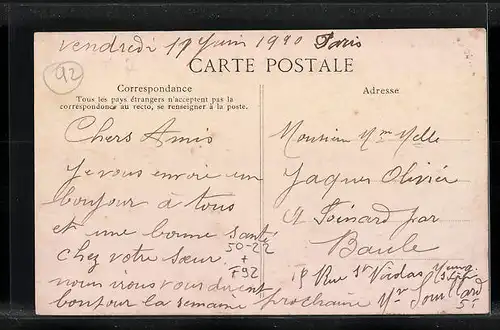 Vendredi 17 Juin 1910 Paris
92
CARTE POSTALE
Correspondance
Tous les pays étrangers n'acceptent pas la
correspondance au recto, se renseigner à la poste.
Chers Amis
Je vous envoie un
bonjour à tous
et une bonne santé
chez votre sœur.
nous irons vous dire un
bonjour la semaine prochaine
50-22
+
F92
Adresse
Monsieur Mme Melle
Jaques Olivier
Foinard par
Baule
15 Rue St Nicolas
Mr